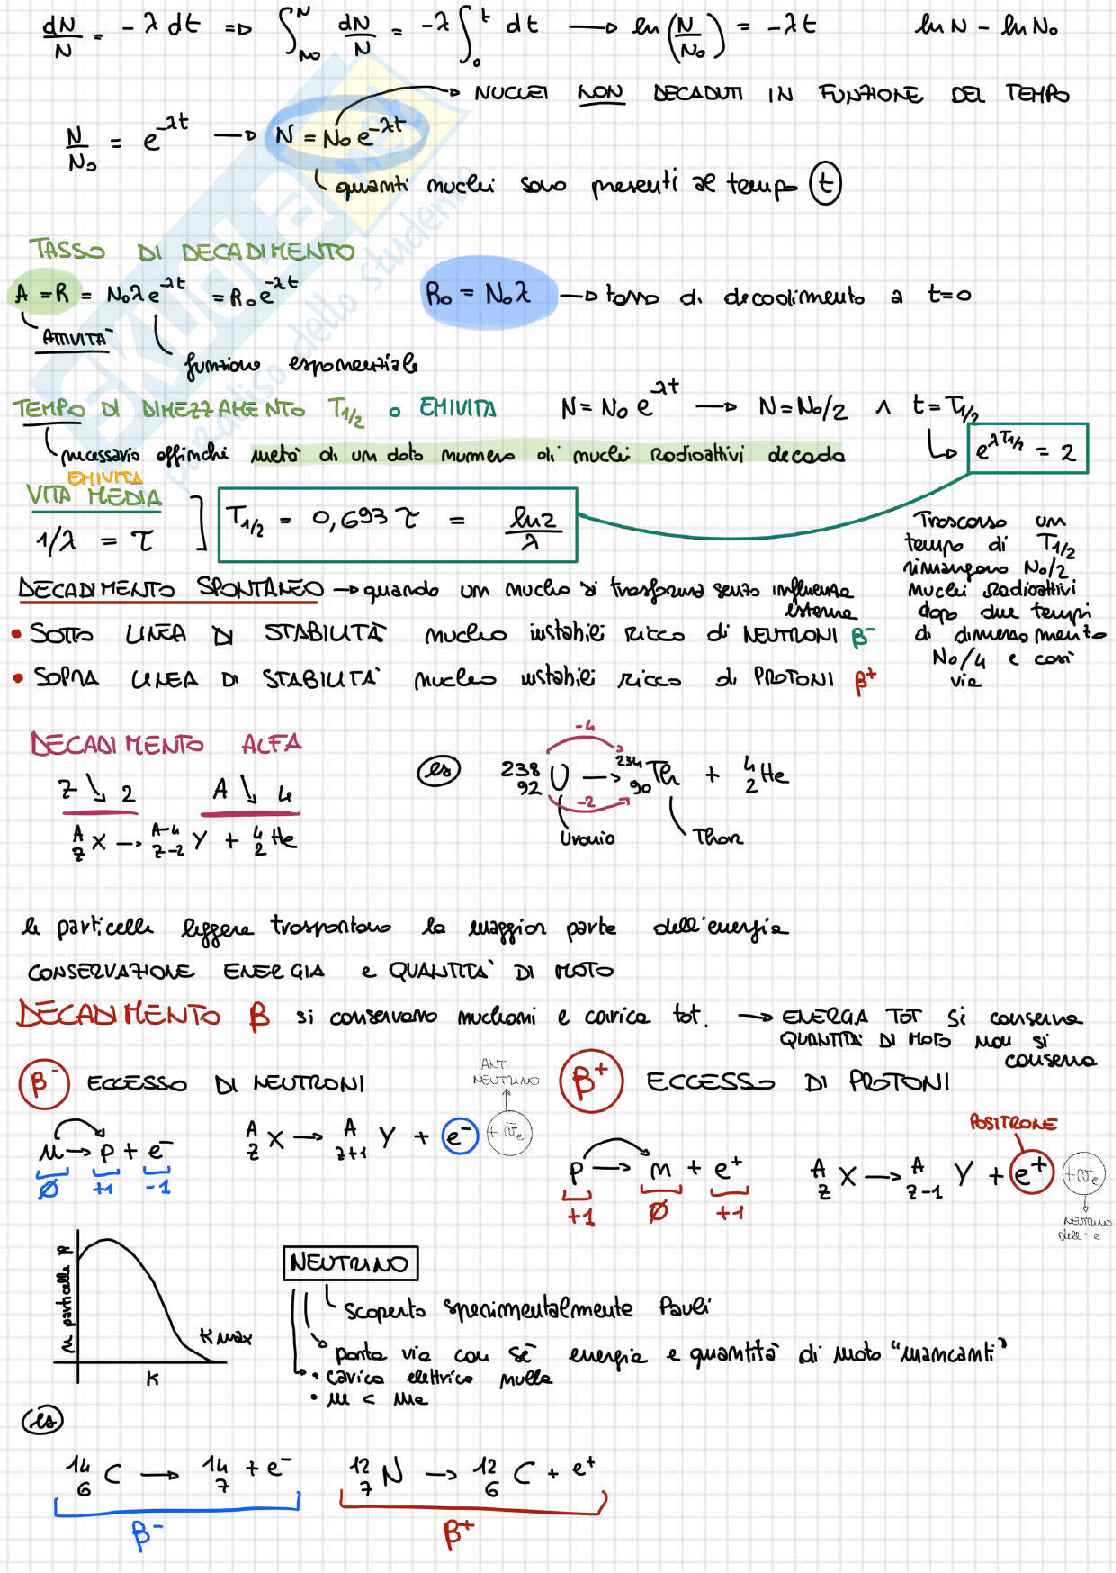 dN/N = -λ dt => ∫_{N0}^{N} dN/N = -λ ∫_0^t dt → ln(N/N0) = -λt ln N - ln N0
→ NUCLEI NON DECADUTI IN FUNZIONE DEL TEMPO
N/N0 = e^{-λt} → N = N0 e^{-λt}
quanti nuclei sono presenti al tempo t
TASSO DI DECADIMENTO
A = R = N0 λ e^{-λt} = R0 e^{-λt} R0 = N0 λ → tasso di decadimento a t=0
ATTIVITA'
funzione esponenziale
TEMPO DI DIMEZZAMENTO T1/2 o EMIVITA N = N0 e^{-λt} → N = N0/2 ∧ t = T1/2
necessario affinché metà di un dato numero di nuclei radioattivi decada e^{λT1/2} = 2
EMIVITA
VITA MEDIA
1/λ = τ T1/2 = 0,693 τ = ln2/λ
Trascorso un
tempo di T1/2
rimangono N0/2
nuclei radioattivi
dopo due tempi
di dimezzamento
N0/4 e così
via
DECADIMENTO SPONTANEO → quando un nucleo si trasforma senza influenze
esterne
• SOTTO LINEA DI STABILITA' nucleo instabili ricco di NEUTRONI β⁻
• SOPRA LINEA DI STABILITA' nucleo instabili ricco di PROTONI β⁺
DECADIMENTO ALFA
Z ↘ 2 A ↘ 4
^A_Z X → ^{A-4}_{Z-2} Y + ^4_2 He
es ^238_92 U → ^234_90 Th + ^4_2 He
-4
-2
Uranio Thor
le particelle leggere trasportano la maggior parte dell'energia
CONSERVAZIONE ENERGIA e QUANTITA' DI MOTO
DECADIMENTO β si conservano nucleoni e carica tot. → ENERGIA TOT si conserva
QUANTITA' DI MOTO non si
conserva
β⁻ ECCESSO DI NEUTRONI
ANTI
NEUTRINO
n → p + e⁻ ^A_Z X → ^A_{Z+1} Y + e⁻ + ν̄e
Ø +1 -1
β⁺ ECCESSO DI PROTONI
POSITRONE
p → n + e⁺ ^A_Z X → ^A_{Z-1} Y + e⁺ + νe
+1 Ø +1
NEUTRINO
dell' e
n particelle β
K max
K
NEUTRINO
scoperto sperimentalmente Pauli
porta via con sè energia e quantità di moto "mancanti"
• carica elettrica nulla
• m < me
es
^14_6 C → ^14_7 + e⁻ ^12_7 N → ^12_6 C + e⁺
β⁻ β⁺